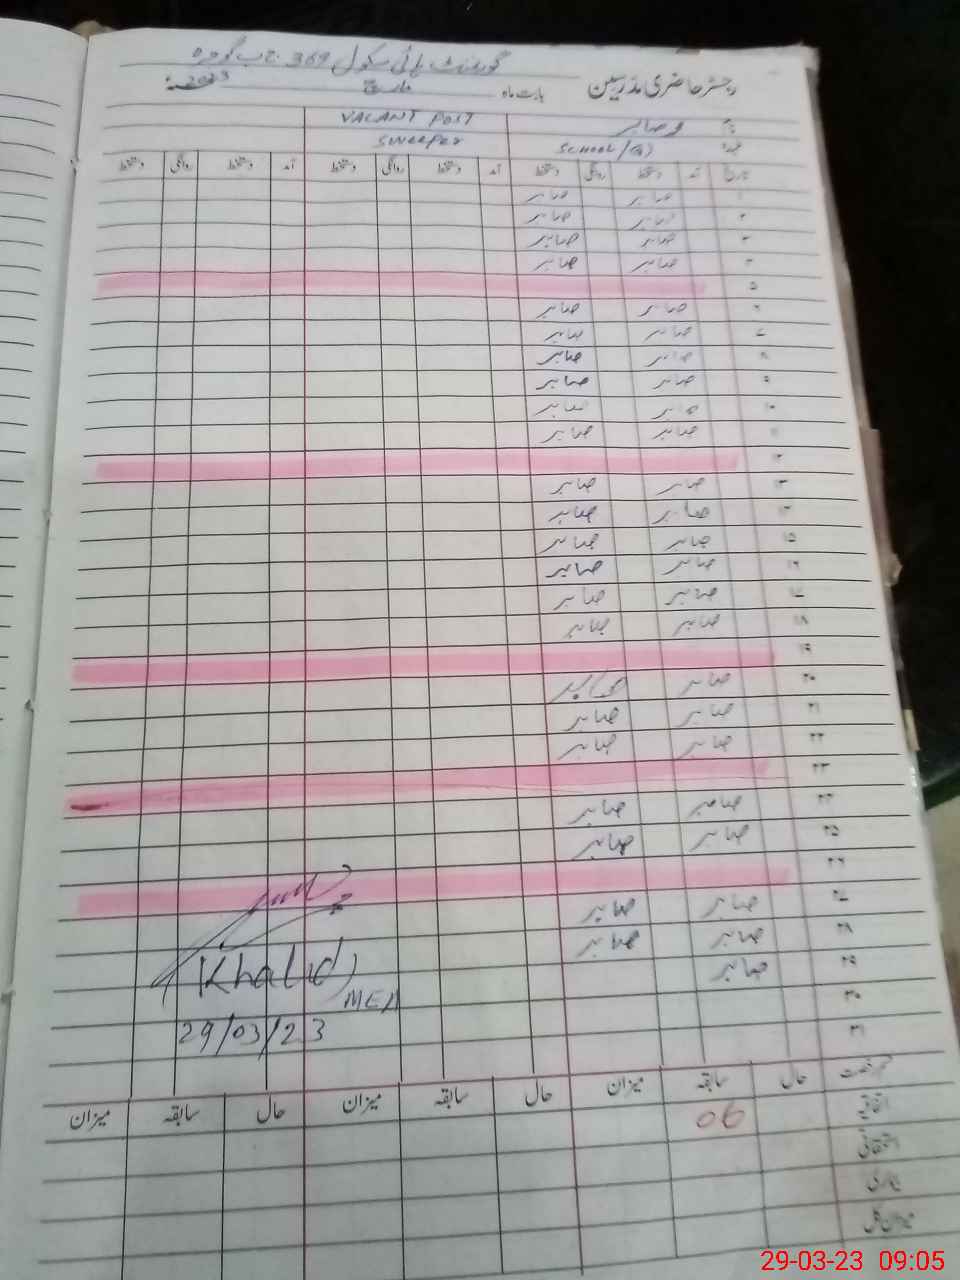 گورنمنٹ ہائی سکول 369 ج ب گوجرہ
رجسٹر حاضری مدرسین بابت ماہ مارچ 2023ء
نام صابر VACANT POST
عہدہ SCHOOL SWEEPER
تاریخ آمد دستخط روانگی دستخط آمد دستخط روانگی دستخط آمد دستخط روانگی دستخط
۱ صابر صابر
۲ صابر صابر
۳ صابر صابر
۴ صابر صابر
۵
۶ صابر صابر
۷ صابر صابر
۸ صابر صابر
۹ صابر صابر
۱۰ صابر صابر
۱۱ صابر صابر
۱۲
۱۳ صابر صابر
۱۴ صابر صابر
۱۵ صابر صابر
۱۶ صابر صابر
۱۷ صابر صابر
۱۸ صابر صابر
۱۹
۲۰ صابر صابر
۲۱ صابر صابر
۲۲ صابر صابر
۲۳
۲۴ صابر صابر
۲۵ صابر صابر
۲۶
۲۷ صابر صابر
۲۸ صابر صابر
۲۹ صابر
۳۰
۳۱
Khalid
MEA
29/03/23
رخصت حال سابقہ میزان حال سابقہ میزان حال سابقہ میزان
اتفاقیہ 06
استحقاقی
بیماری
میزان کل
29-03-23 09:05